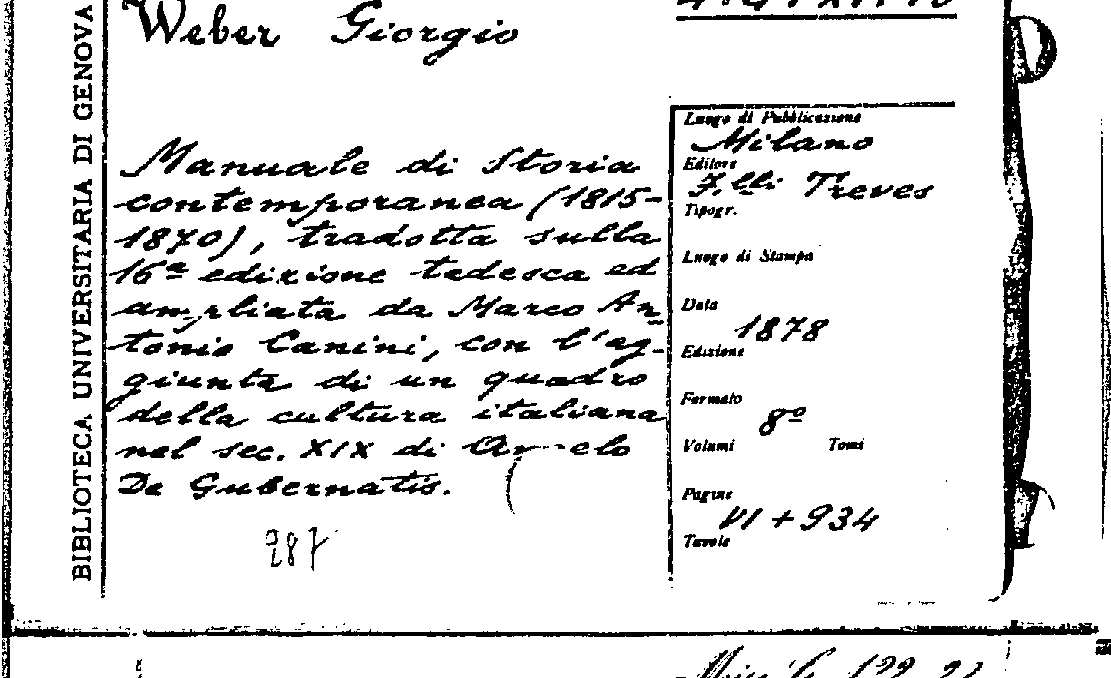 BIBLIOTECA UNIVERSITARIA DI GENOVA
Weber Giorgio
Manuale di Storia
contemporanea (1815-
1870), tradotta sulla
16ª edizione tedesca ed
ampliata da Marco An-
tonio Canini, con l'ag-
giunta di un quadro
della cultura italiana
nel sec. XIX di Angelo
De Gubernatis.
287
Luogo di Pubblicazione
Milano
Editore
F.lli Treves
Tipogr.
Luogo di Stampa
Data
1878
Edizione
Formato
8º
Volumi Tomi
Pagine
VI + 934
Tavole